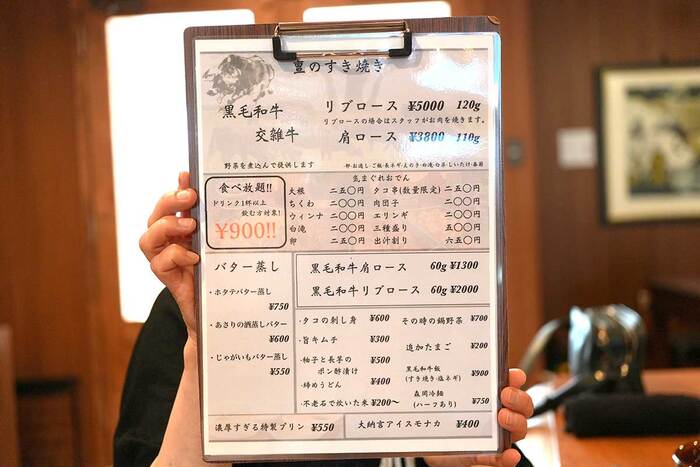 亶のすき焼き
黒毛和牛 リブロース ¥5000 120g
リブロースの場合はスタッフがお肉を焼きます。
交雑牛 肩ロース ¥3800 110g
野菜を煮込んで提供します
気まぐれおでん
食べ放題!!
ドリンク1杯以上
飲む方対象!
¥900!!
大根 二五〇円
ちくわ 二〇〇円
ウィンナ 二〇〇円
白滝 二〇〇円
卵 二五〇円
タコ串(数量限定) 二五〇円
肉団子 二〇〇円
エリンギ 二〇〇円
三種盛り 五〇〇円
出汁割り 六五〇円
バター蒸し
・ホタテバター蒸し
¥750
・あさりの酒蒸しバター
¥600
・じゃがいもバター蒸し
¥550
黒毛和牛肩ロース 60g ¥1300
黒毛和牛リブロース 60g ¥2000
・タコの刺し身 ¥600
・旨キムチ ¥300
・柚子と長芋の
ポン酢漬け ¥500
・締めうどん ¥400
・不老石で炊いた米 ¥200〜
その時の鍋野菜 ¥700
追加たまご ¥200
黒毛和牛飯
(すき焼き・塩ネギ) ¥900
盛岡冷麺
(ハーフあり) ¥750
濃厚すぎる特製プリン ¥550
大納言アイスモナカ ¥400